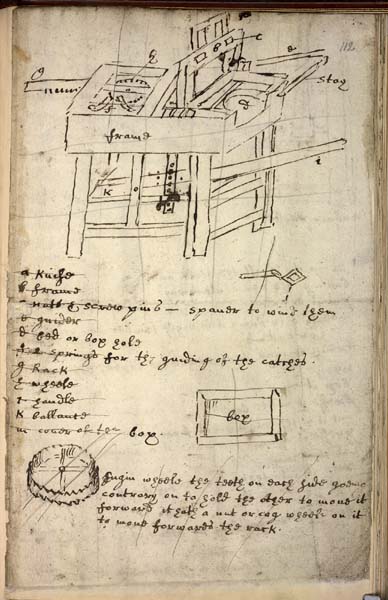 112
stay
frame
K
a knife
b frame
nutt & screw pins — spaner to wind them
c guider
d bed or box hole
springs for the guiding of the catches.
g Rack
h wheele
i handle
K ballance
m cover of the box
box
Engin wheele the teeth on each side goeing
contrary on to hold the other to move it
forward it hath a nut or cog wheele on it
to move forwards the rack.